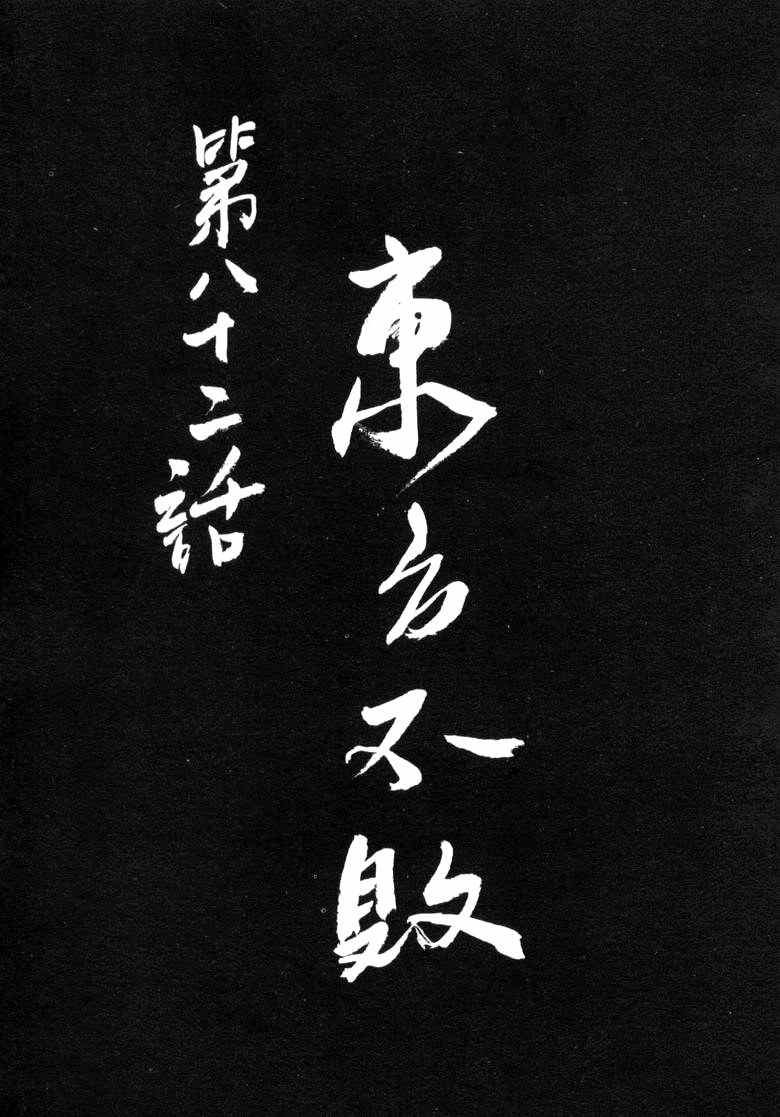 東方不敗
第八十二話